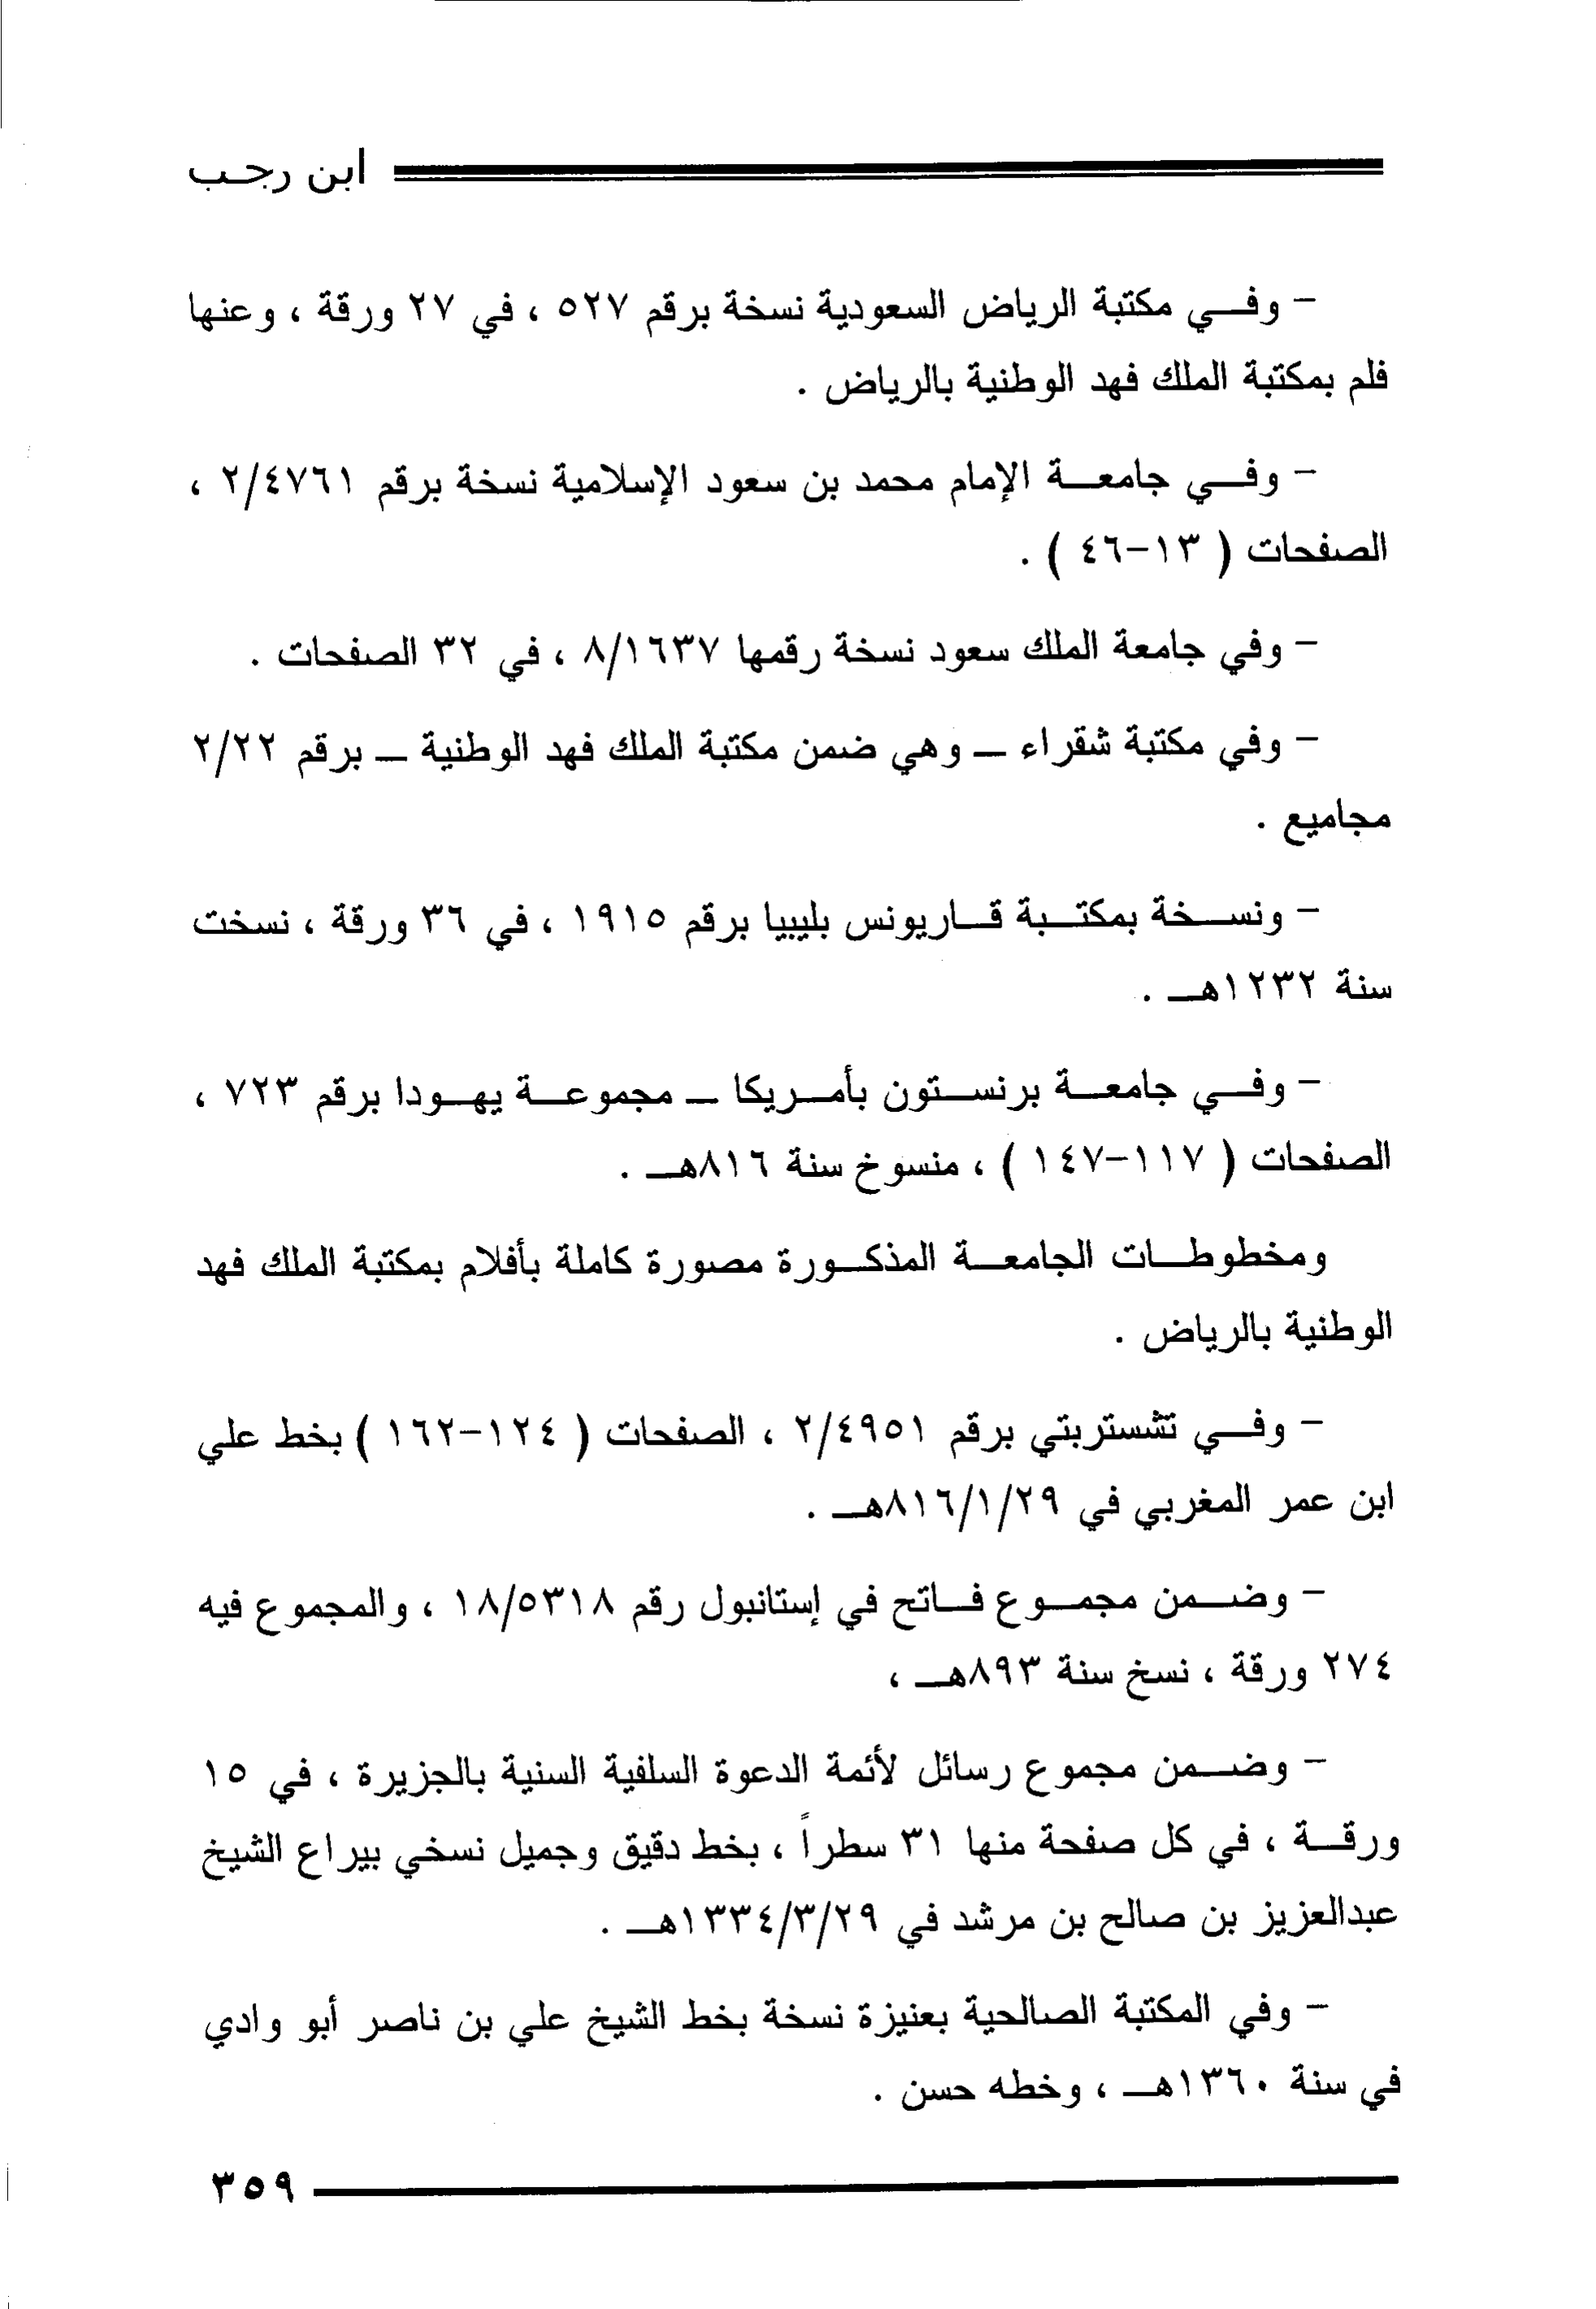 ابن رجب
- وفي مكتبة الرياض السعودية نسخة برقم ٥٢٧ ، في ٢٧ ورقة ، وعنها
فلم بمكتبة الملك فهد الوطنية بالرياض .
- وفي جامعة الإمام محمد بن سعود الإسلامية نسخة برقم ٢/٤٧٦١ ،
الصفحات ( ١٣-٤٦ ) .
- وفي جامعة الملك سعود نسخة رقمها ٨/١٦٣٧ ، في ٣٢ الصفحات .
- وفي مكتبة شقراء – وهي ضمن مكتبة الملك فهد الوطنية – برقم ٢/٢٢
مجاميع .
- ونسخة بمكتبة قاريونس بليبيا برقم ١٩١٥ ، في ٣٦ ورقة ، نسخت
سنة ١٢٣٢هـ .
- وفي جامعة برنستون بأمريكا – مجموعة يهودا برقم ٧٢٣ ،
الصفحات ( ١١٧-١٤٧ ) ، منسوخ سنة ٨١٦هـ .
ومخطوطات الجامعة المذكورة مصورة كاملة بأفلام بمكتبة الملك فهد
الوطنية بالرياض .
- وفي تشستربتي برقم ٢/٤٩٥١ ، الصفحات ( ١٢٤-١٦٢ ) بخط علي
ابن عمر المغربي في ٨١٦/١/٢٩هـ .
- وضمن مجموع فاتح في إستانبول رقم ١٨/٥٣١٨ ، والمجموع فيه
٢٧٤ ورقة ، نسخ سنة ٨٩٣هـ ،
- وضمن مجموع رسائل لأئمة الدعوة السلفية السنية بالجزيرة ، في ١٥
ورقة ، في كل صفحة منها ٣١ سطراً ، بخط دقيق وجميل نسخي بيراع الشيخ
عبدالعزيز بن صالح بن مرشد في ١٣٣٤/٣/٢٩هـ .
- وفي المكتبة الصالحية بعنيزة نسخة بخط الشيخ علي بن ناصر أبو وادي
في سنة ١٣٦٠هـ ، وخطه حسن .
٣٥٩